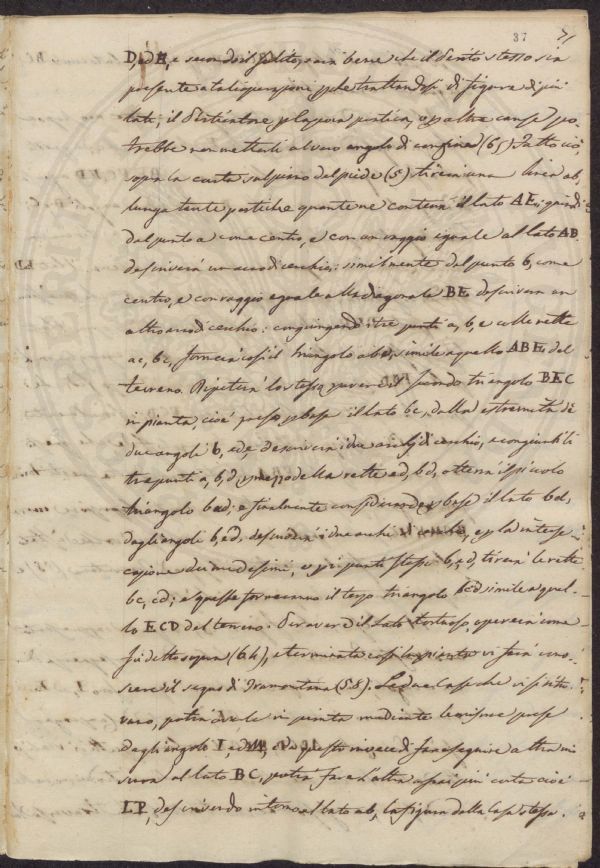 37 71
D, ed E, e secondo il solito sarà bene che il Perito stesso sia
presente a tal operazione, perche trattandosi di figura di più
lati, il per la poca pratica, o per altra causa po-
trebbe non mettersi al vero angolo di confine (65). Fatto ciò
sopra la carta sul piede (5) tirerà una linea ab,
lunga tante pertiche quante ne contiene il lato AE, quindi
dal punto a come centro, e con un raggio eguale al lato AB
descriverà un arco di cerchio: similmente dal punto b, come
centro, e con raggio eguale alla diagonale BE descriverà un
altro arco di cerchio: congiungendo i tre punti a, b, e colle rette
ac, bc, formerà così il triangolo abe, simile a quello ABE del
terreno. Ripeterà lo stesso per aver il secondo triangolo BEC
in pianta, cioè preso per base il lato bc, dalla estremità de
due angoli b, ed e, descriverà i due archi di cerchio, e congiunti li
tre punti a, b, d per mezzo delle rette ed, bd, otterrà il piccolo
triangolo bed; e finalmente considerando per base il lato bd,
dagli angoli b, e d, descriverà i due archi di cerchio, e per la interse-
cazione dei medesimi, e per i punti stessi b, e d, tirerà le rette
bc, cd; e queste formeranno il terzo triangolo bcd simile a quel-
lo ECD del terreno. Per aver il lato tortuoso, opererà come
fu detto sopra (64), e terminata così la pianta vi farà cono-
scere il segno di Tramontana (58). Le due Case che vi si ritro-
vano, potrà averle in pianta mediante le misure prese
dagli angoli I, ed M, e da questo invece di far eseguire altra mi-
sura al lato BC, potrà fare l'altra assai più corta cioè
LP, descrivendo intorno al lato ab, la figura della Casa stessa.